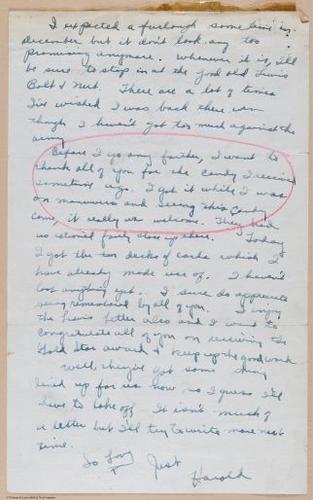 I expected a furlough some time in
december but it don't look any too
promising anymore. Whenever it is, I'll
be sure to stop in at the good old Lewis
Bolt & Nut. There are a lot of times
I've wished I was back there even
though I haven't got too much against the
army.
Before I go any further, I want to
thank all of you for the candy I received
sometime ago. I got it while I was
on maneuvers and seeing this candy
come, it really was welcome. They had
us rationed fairly close up there. Today
I got the two decks of cards which I
have already made use of. I haven't
lost anything yet. I sure do appreciate
being remembered by all of you. I enjoy
the Lewis letter also and I want to
congratulate all of you on receiving the
Gold Star award & keep up the good work
Well, they've got some thing
lined up for us now so I guess I'll
have to take off. It isn't much of
a letter but I'll try to write more next
time.
So Long
Just
Harold